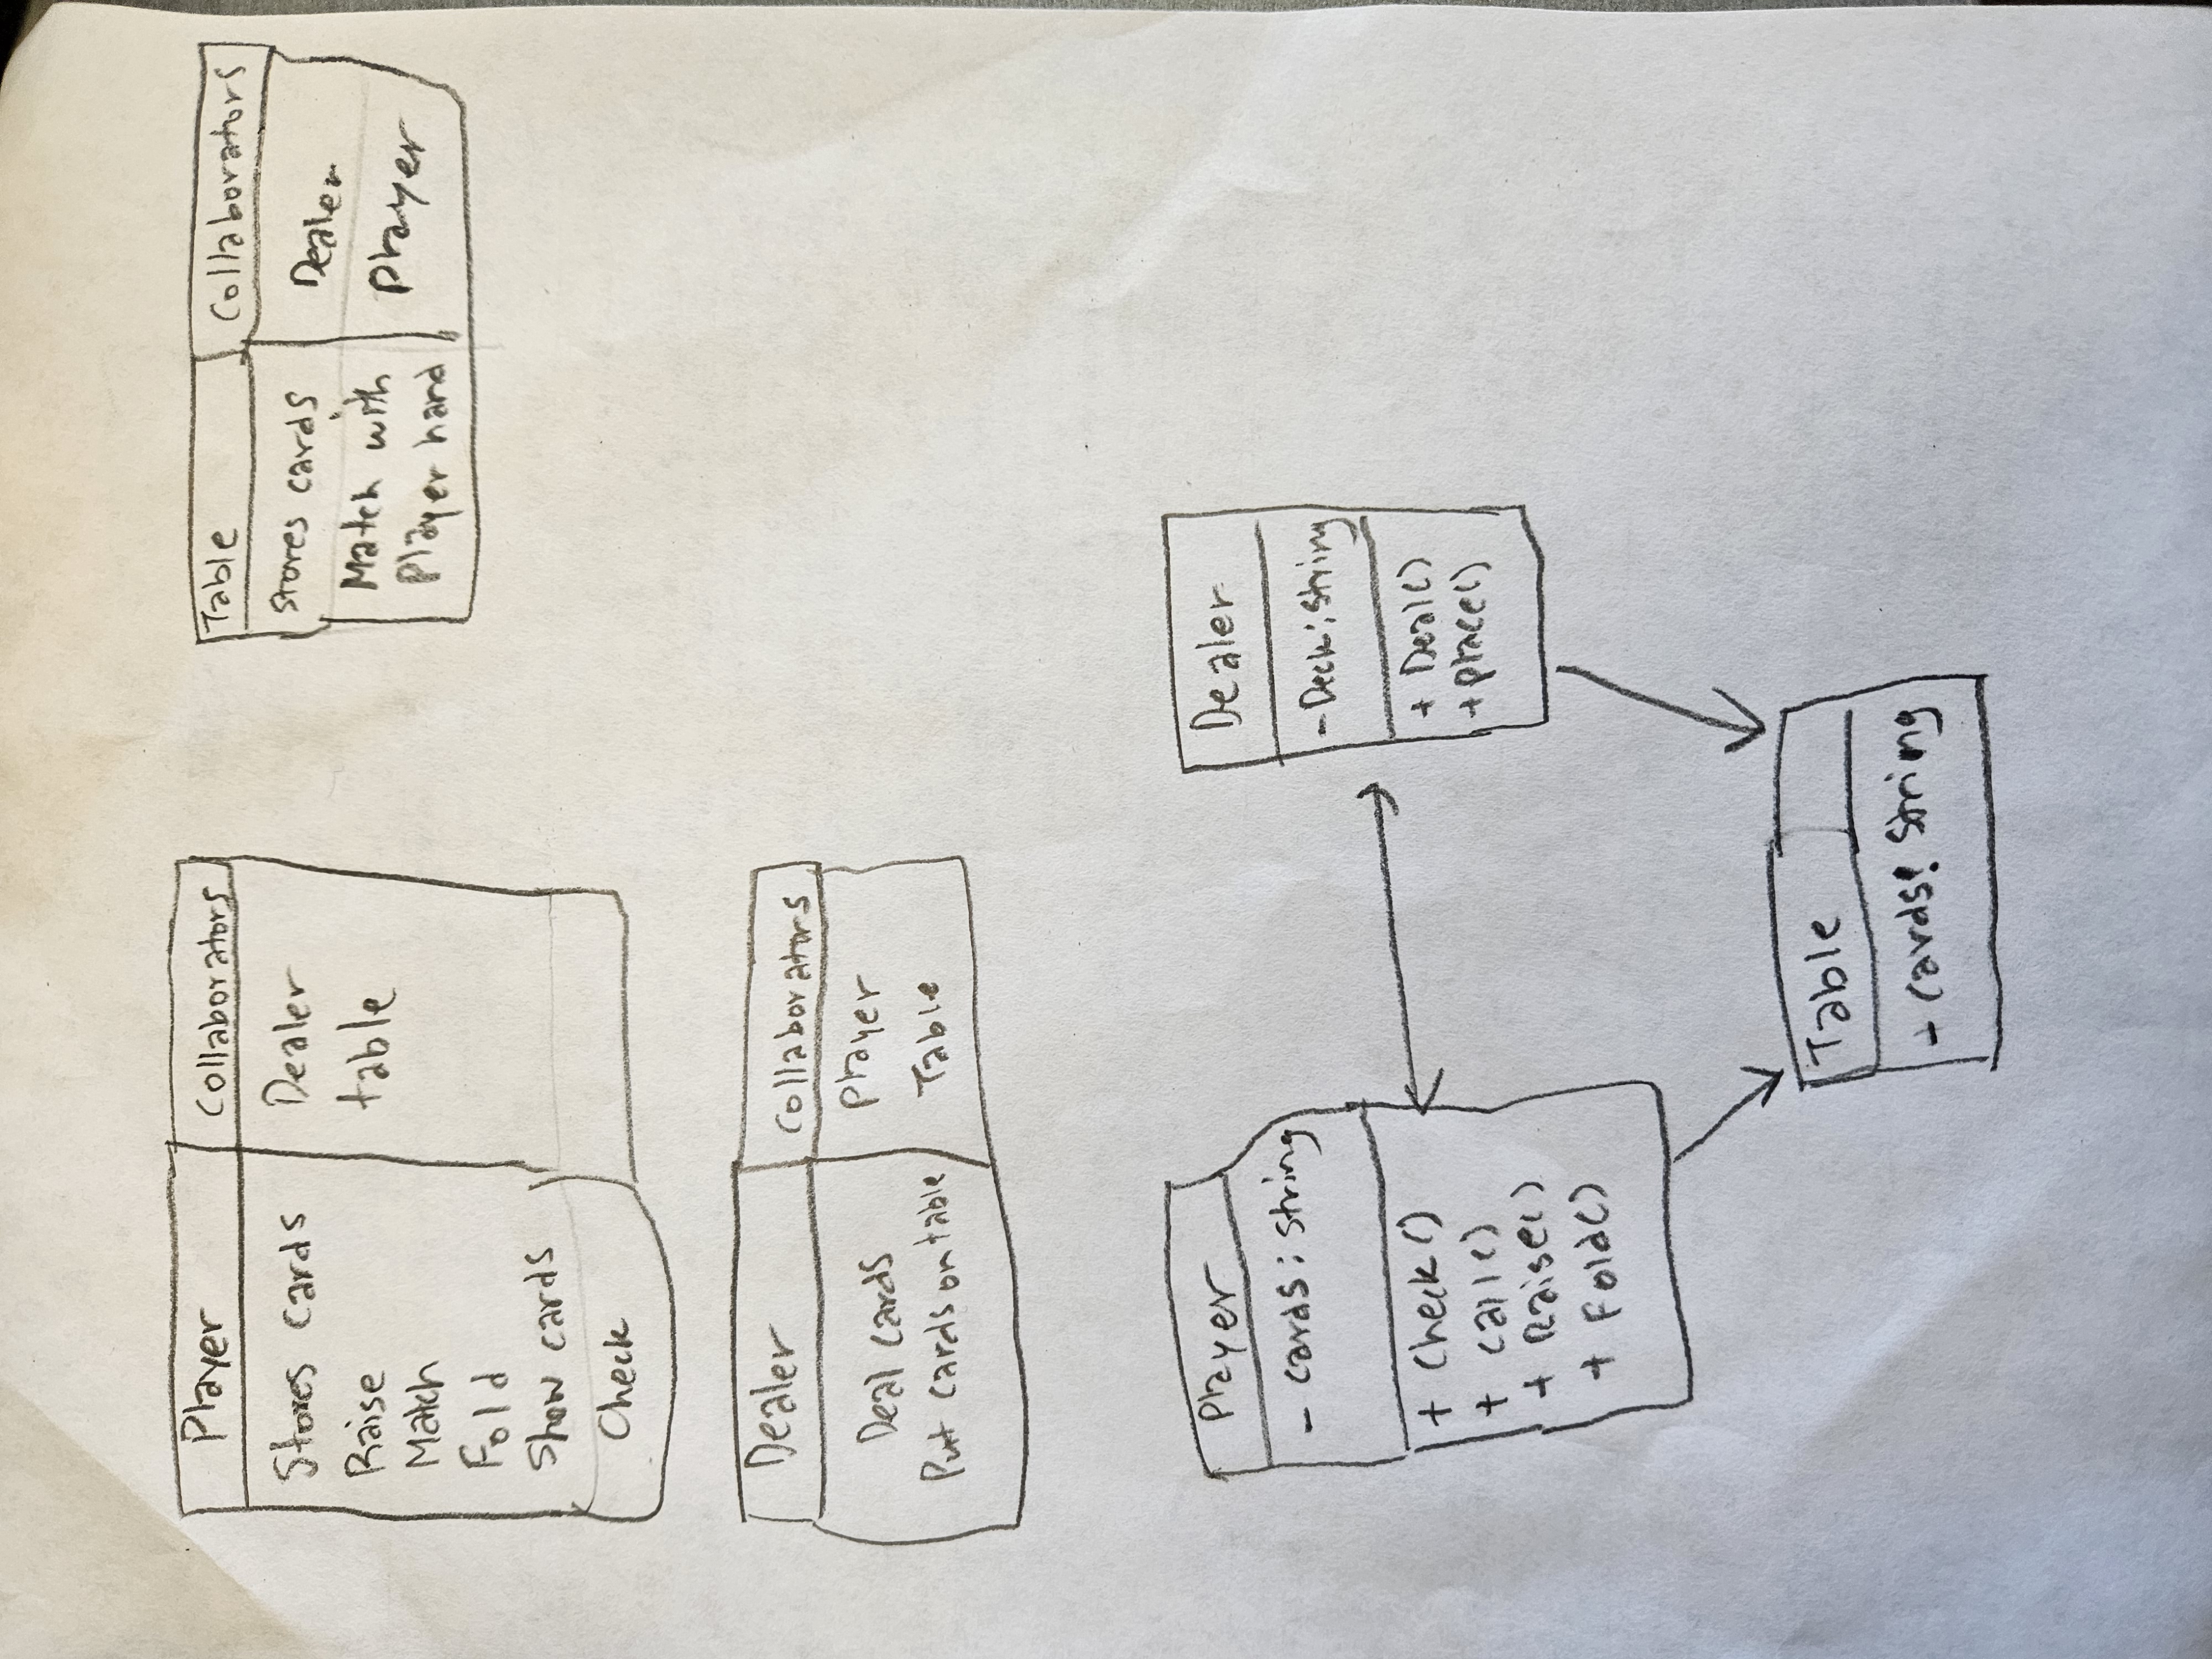 Player
Collaborators
Stores cards
Dealer
Raise
table
Match
Fold
Show cards
Check
Table
Collaborators
stores cards
Dealer
Match with
Player
Player hand
Dealer
Collaborators
Deal cards
Player
Put cards on table
Table
Player
- cards: string
+ Check()
+ Call()
+ Raise()
+ Fold()
Dealer
- Deck: string
+ Deal()
+ place()
Table
- cards: string